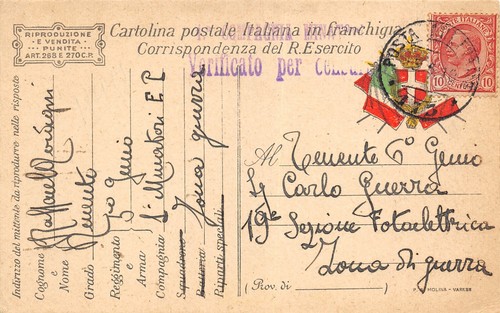 RIPRODUZIONE
E VENDITA
PUNITE
ART. 268 E 270 C.P.
Cartolina postale Italiana in franchigia
Corrispondenza del R. Esercito
Verificato per censura
POSTE ITALIANE
10 10
POSTA
Indirizzo del mittente da riprodurre nelle risposte
Cognome Raffaele
e
Nome
Grado Tenente
Reggimento 5° Genio
e
Arma
Compagnia Minatori
Squadrone Zona guerra
Batteria
Riparti speciali
Al Tenente 6° Genio
Sg Carlo Guerra
19ª Sezione Fotoelettrica
Zona di guerra
(Prov. di )
MOLINA - VARESE